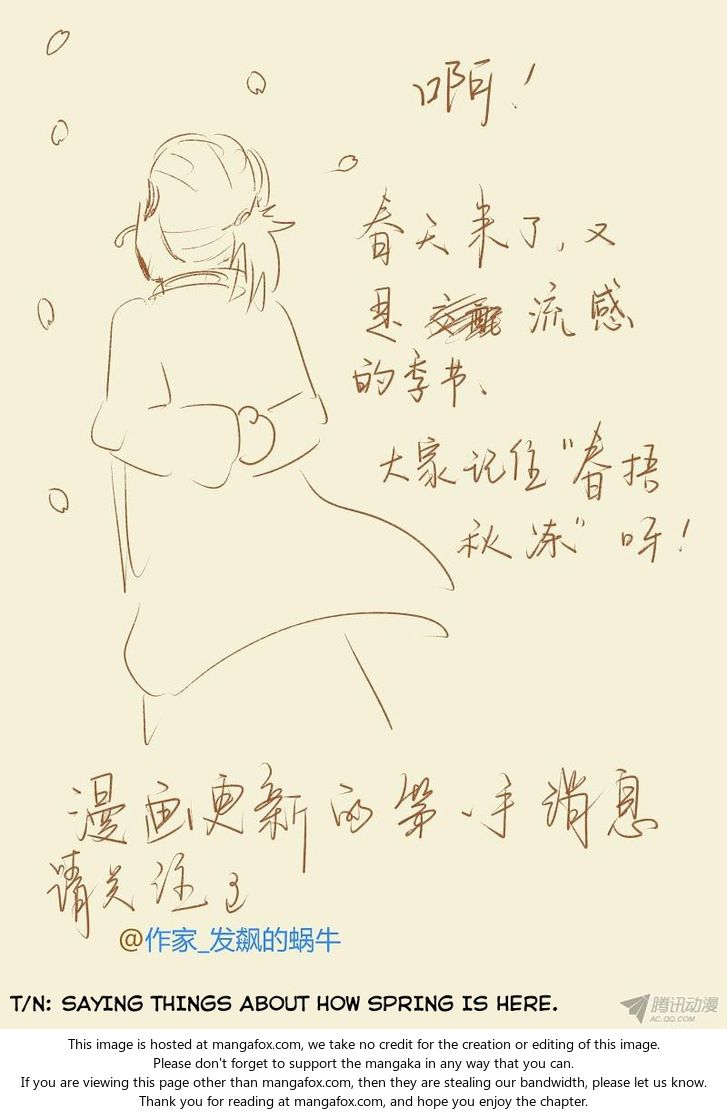 啊！
春天来了，又
是 流感
的季节、
大家记住“春捂
秋冻”呀！
漫画更新的第一手消息
请关注
@作家_发飙的蜗牛
T/N: SAYING THINGS ABOUT HOW SPRING IS HERE.
腾讯动漫
AC.QQ.COM
This image is hosted at mangafox.com, we take no credit for the creation or editing of this image.
Please don't forget to support the mangaka in any way that you can.
If you are viewing this page other than mangafox.com, then they are stealing our bandwidth, please let us know.
Thank you for reading at mangafox.com, and hope you enjoy the chapter.